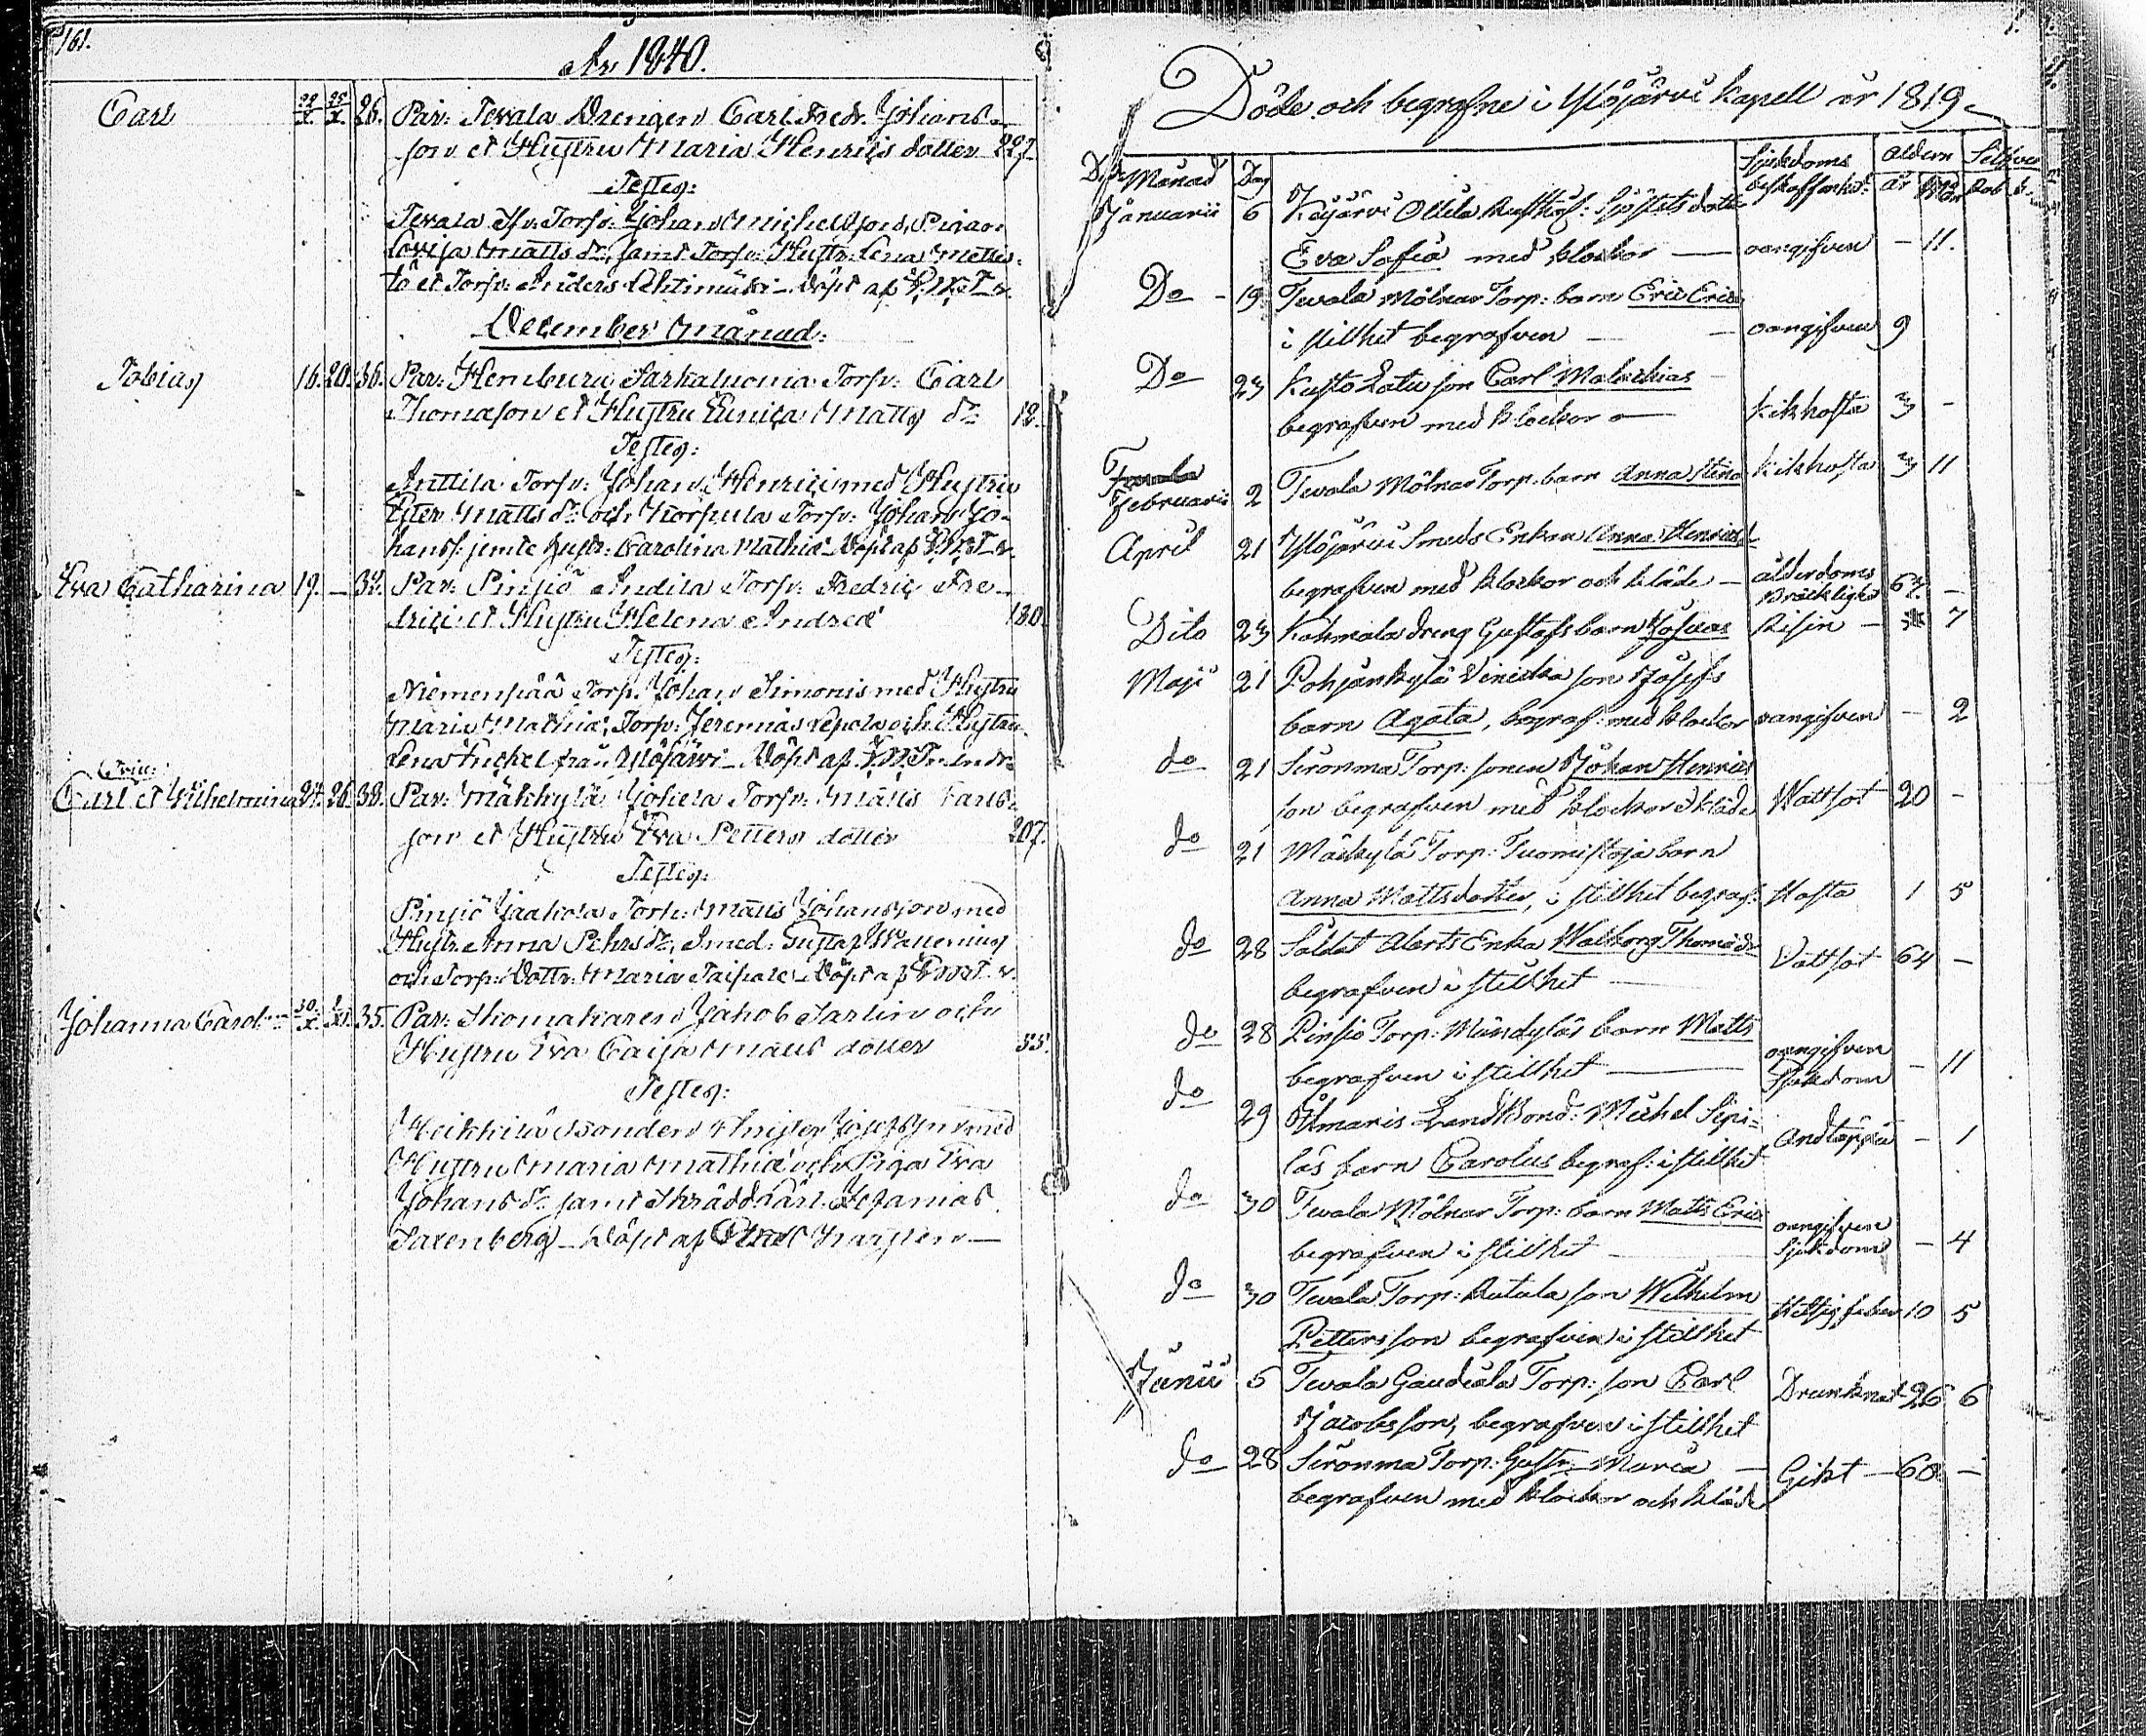 161.
År 1840.
Carl 22/X. 25/X. 26. Par: Tevala Drengen Carl Fredr. Johans-
son et Hustru Maria Henrics dotter 227.
Testes:
Tevala Torp: Johan Michelsson, Pigan
Lovisa Matts dr, samt Torp: Hustr. Lena
et Torp: Anders Lehtimäki – döpt af
December Månad:
Tobias 16. 20. 36. Par: Hemburu Sarkaluoma Torp: Carl
Thomason et Hustru Eunica Matts dr 12.
Testes:
Anttila Torp: Johan Henrici med Hustru
Ester Matts dr och Korpula Torp: Johan Jo-
hanss: jemte Hustr: Carolina Mathiæ – Döpt af
Eva Catharina 19. – 32. Par: Pinsiö Andila Torp: Fredric Fre-
drici et Hustru Helena Andreæ 180.
Testes:
Niemenpää Torp. Johan Simonis med Hustru
Maria Mathiæ, Torp: Jeremias Lepola och Hustru
Lena från Ylöjärvi – Döpt af
Carl et Vilhelmina 24. 26. 38. Par: Mäkkylä Johela Torp: Matts Carls-
son et Hustru Eva Petters dotter 207.
Testes:
Pinsiö Jaakola Torp: Matts Johansson med
Hustr. Anna Pehrs dr, Smed: Gustaf
och Torp: Dottr: Maria Taipale – Döpt af
Johanna Carol 30/X. 1/XI. 35. Par: Jakob Sarlin och
Hustru Eva Caisa Matts dotter 55.
Testes:
Heikkilä Bonden med
Hustru Maria Mathiæ och Piga Eva
Johans dr samt
Saxenberg – Döpt af
1.
Döde och begrafne i Ylöjärvi Kapell år 1819.
Månad Dag Sjukdoms beskaffenhet: åldern år Mån
Januarii 6 Keijärvi Ollila
Eva Sofia med klockor – oangifven – 11.
Do – 19 Tevala Mölnar Torp: barn Eric Erics
i stillhet begrafven – oangifven 9
Do 23 Kusto Latu son Carl Malachias
begrafven med klockor – Kikhosta 3 –
Februarii 2 Tevala Mölnar Torp. barn Anna Stina Kikhosta 3 11
April 21 Ylöjärvi Smeds Enkan Anna Henricsd
begrafven med klockor och kläde – ålderdoms bräcklighet 67. –
Dito 23 Kohmala dreng Gustafs barn Josuas Risin – 7
Maji 21 Pohjankylä Vinikka son Josefs
barn Agata, begraf: med klockor oangifven – 2
do 21 Sironma Torp: sonen Johan Henrics
son begrafven med klockor o kläde Wattsot 20 –
do 21 Mäkkylä Torp: Tuomistoja barn
Anna Mattsdotter, i stillhet begraf: Hosta 1 5
do 28 Soldat Alerts Enka Walborg Thomædr
begrafven i stillhet Vattsot 64 –
do 28 Pinsio Torp: Mändyläs barn Matts
begrafven i stillhet – oangifven Sjukdom – 11
do 29 Ilmaris LandBond: Michel Sipi-
läs barn Carolus begraf: i stillhet Andtäppa – 1
do 30 Tevala Mölnar Torp: barn Matts Erics
begrafven i stillhet – oangifven Sjukdom – 4
do 30 Tevala Torp: Rutala son Wilhelm
Pettersson begrafven i stillhet Hettsig feber 10 5
Junii 5 Tevala Gaudiala Torp: son Carl
Jacobsson, begrafven i stillhet Drunknat 26 6
do 28 Sironma Torp: Maria –
begrafven med klockor och kläde Gikt – 60 –